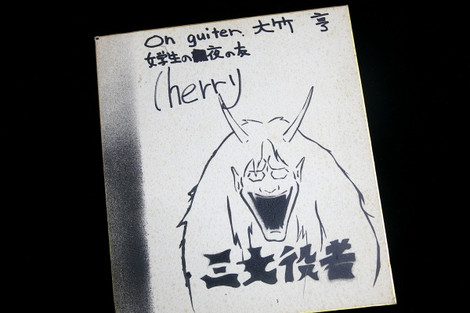 On guiter. 大竹 亨
女学生の夜の友
Cherry
三文役者